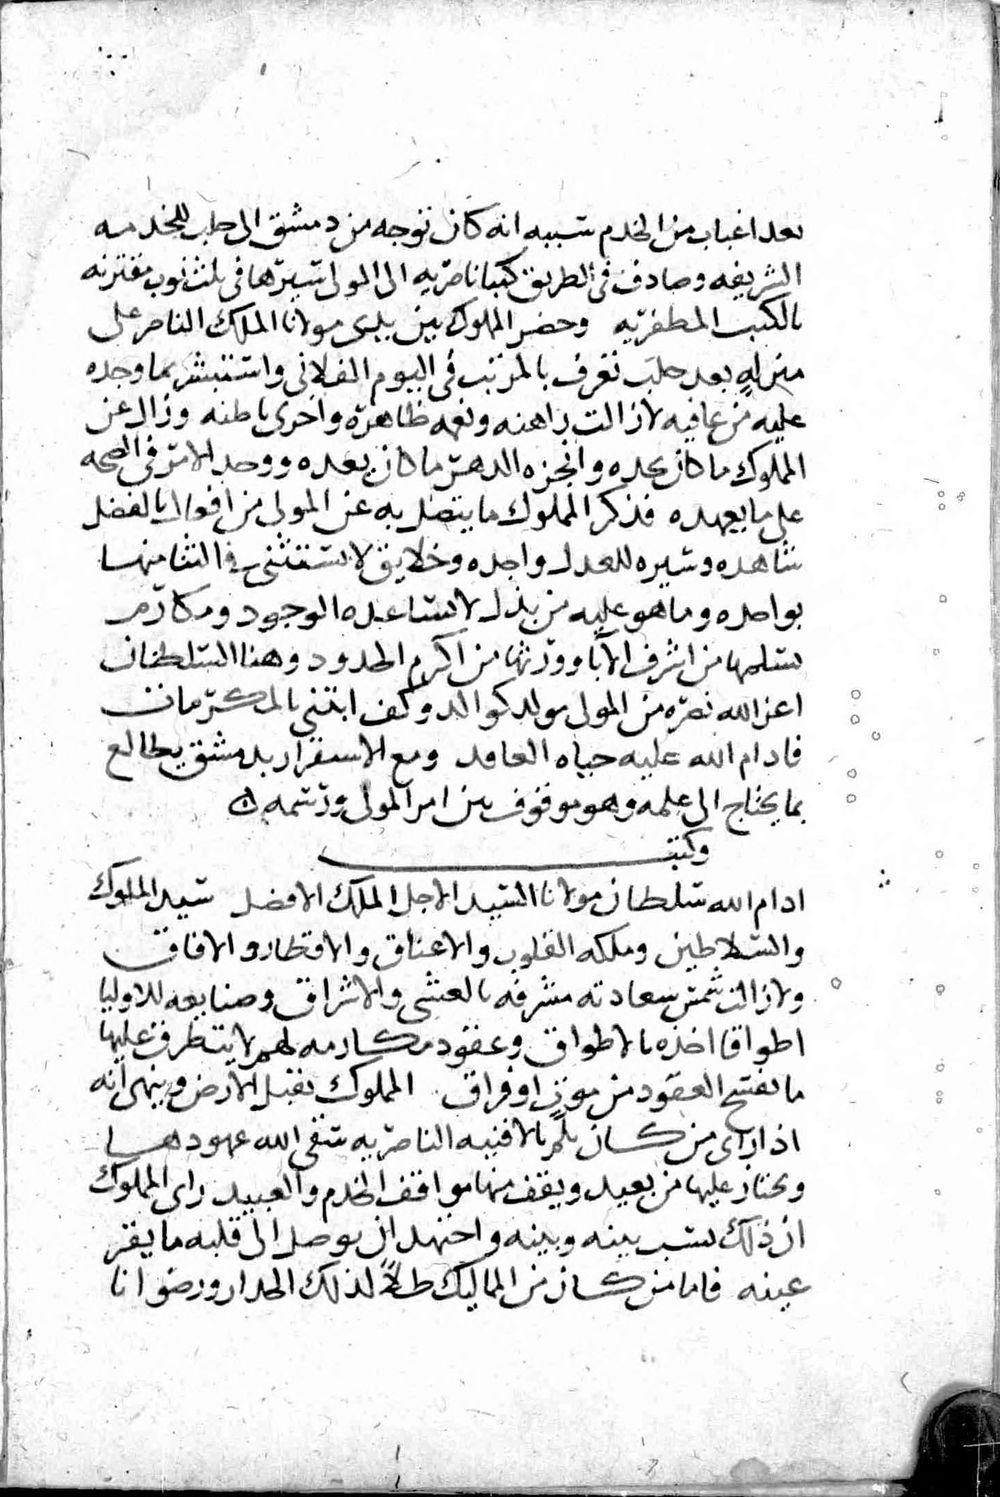 بعد اغباب من الخدم سببه انه كان توجه من دمشق الى حلب للخدمه
الشريفه وصادف فى الطريق كتبا ناصريه الى المولى سيرها فى ثلث نوب مقترنه
بالكتب المظفريه وحضر المملوك بين يدى مولانا الملك الناصر على
منزله بعد حلب تعرف بالمرتب فى اليوم الفلانى واستبشر بما وجده
عليه من عافيه لازالت راهنه ونعمه ظاهره واخرى باطنه وزال عن
المملوك ما كان يحده وانجزه الدهر ما كان يعده ووجد الامر فى الصحه
على ما يعهده فذكر المملوك ما يتصل به عن المولى من افعال بالفضل
شاهده وسيره للعدل واجده وخلايق لا يستثنى فى الثنا منها
بواحده وما هو عليه من بذل لا يساعده الوجود ومكارم
تسلمها من اشرف الابا وورثها من اكرم الجدود وهنا السلطان
اعز الله نصره من المولى بولد كوالد وكف ابتنى بالمكرمات
فادام الله عليه حياه العاقد ومع الاستقرار بدمشق يطالع
بما يحتاج الى علمه وهو موقوف بين امر المولى ورسمه ان
وكتب
ادام الله سلطان مولانا السيد الاجل الملك الافضل سيد الملوك
والسلاطين وملكه القلوب والاعناق والاقطار والافاق
ولازالت شمس سعادته مشرقه بالعشى والاشراق وصنايعه للاوليا
اطواقا اخذه بالاطواق وعقود مكارمه لهم لا يتطرق عليها
ما يفسخ العقود من موت او فراق المملوك يقبل الارض وينهى انه
اذا راى من كان يلم بالافنيه الناصريه سقى الله عهودها
ويجتاز عليها من بعيد ويقف منها مواقف الخدم والعبيد راى المملوك
ان ذلك نسب بينه وبينه واجتهد ان يوصل الى قلبه ما يقر
عينه فاما من كان من المماليك ظلا لذلك الجدار ورضوانا